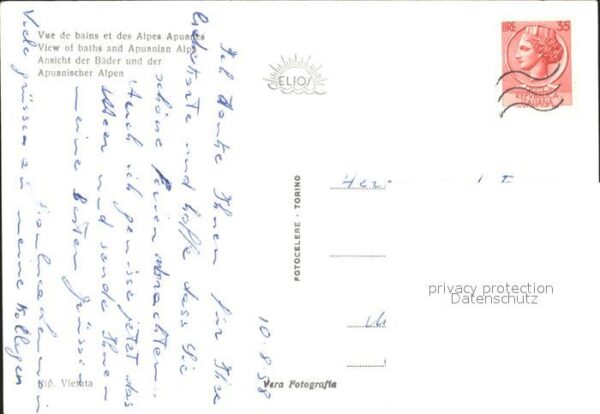 Vue de bains et des Alpes Apuanes
View of baths and Apuanian Alps
Ansicht der Bäder und der
Apuanischer Alpen
ELIOS
LIRE 35
REPUBBLICA
ITALIANA
FOTOCELERE - TORINO
10.8.58
Ich danke Ihnen für Ihre
und hoffe dass Sie
schöne Ferien
Auch ich geniesse jetzt das
Meer und sende Ihnen
meine besten Grüsse
Viele Grüsse an meine Kollegen
privacy protection
Datenschutz
Rip. Vietata
Vera Fotografia